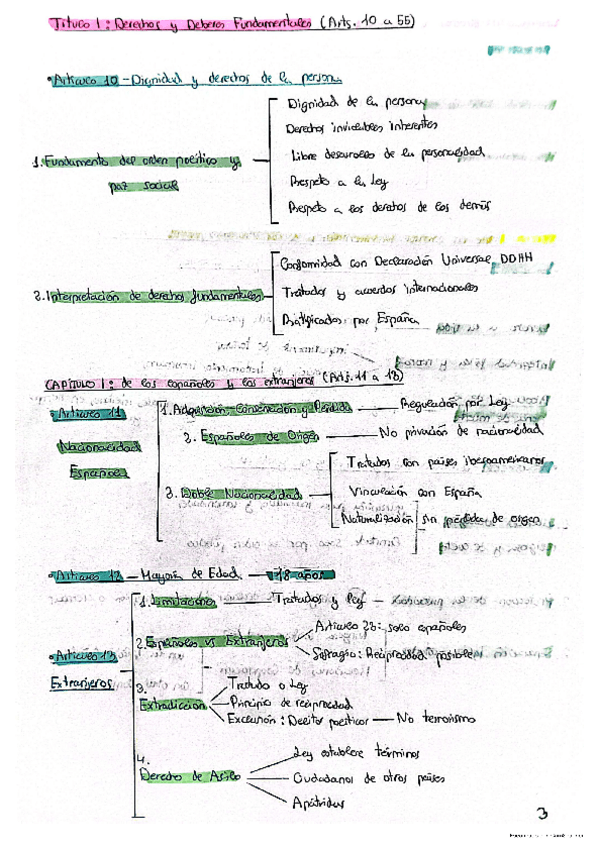 Título 1: Derechos y Deberes Fundamentales (Arts. 10 a 55)
• Artículo 10 - Dignidad y derechos de la persona
1. Fundamento del orden político y paz social
Dignidad de la persona
Derechos inviolables inherentes
Libre desarrollo de la personalidad
Respeto a la ley
Respeto a los derechos de los demás
2. Interpretación de derechos fundamentales
Conformidad con Declaración Universal DDHH
Tratados y acuerdos internacionales
Ratificados por España
CAPÍTULO 1: de los españoles y los extranjeros (Arts. 11 a 13)
• Artículo 11
Nacionalidad
Española
1. Adquisición Conservación y Pérdida — Regulación por Ley
2. Españoles de Origen — No privación de nacionalidad
3. Doble Nacionalidad
Tratados con países iberoamericanos
Vinculación con España
Naturalización sin pérdida de origen
• Artículo 12 — Mayoría de Edad — 18 años
• Artículo 13
Extranjeros
1. Limitaciones — Tratados y ley
2. Españoles vs Extranjeros
Artículo 23: solo españoles
Sufragio: Reciprocidad posible
3. Extradición
Tratado o Ley
Principio de reciprocidad
Exclusión: Delitos políticos — No terrorismo
4. Derecho de Asilo
Ley establece términos
Ciudadanos de otros países
Apátridas
3